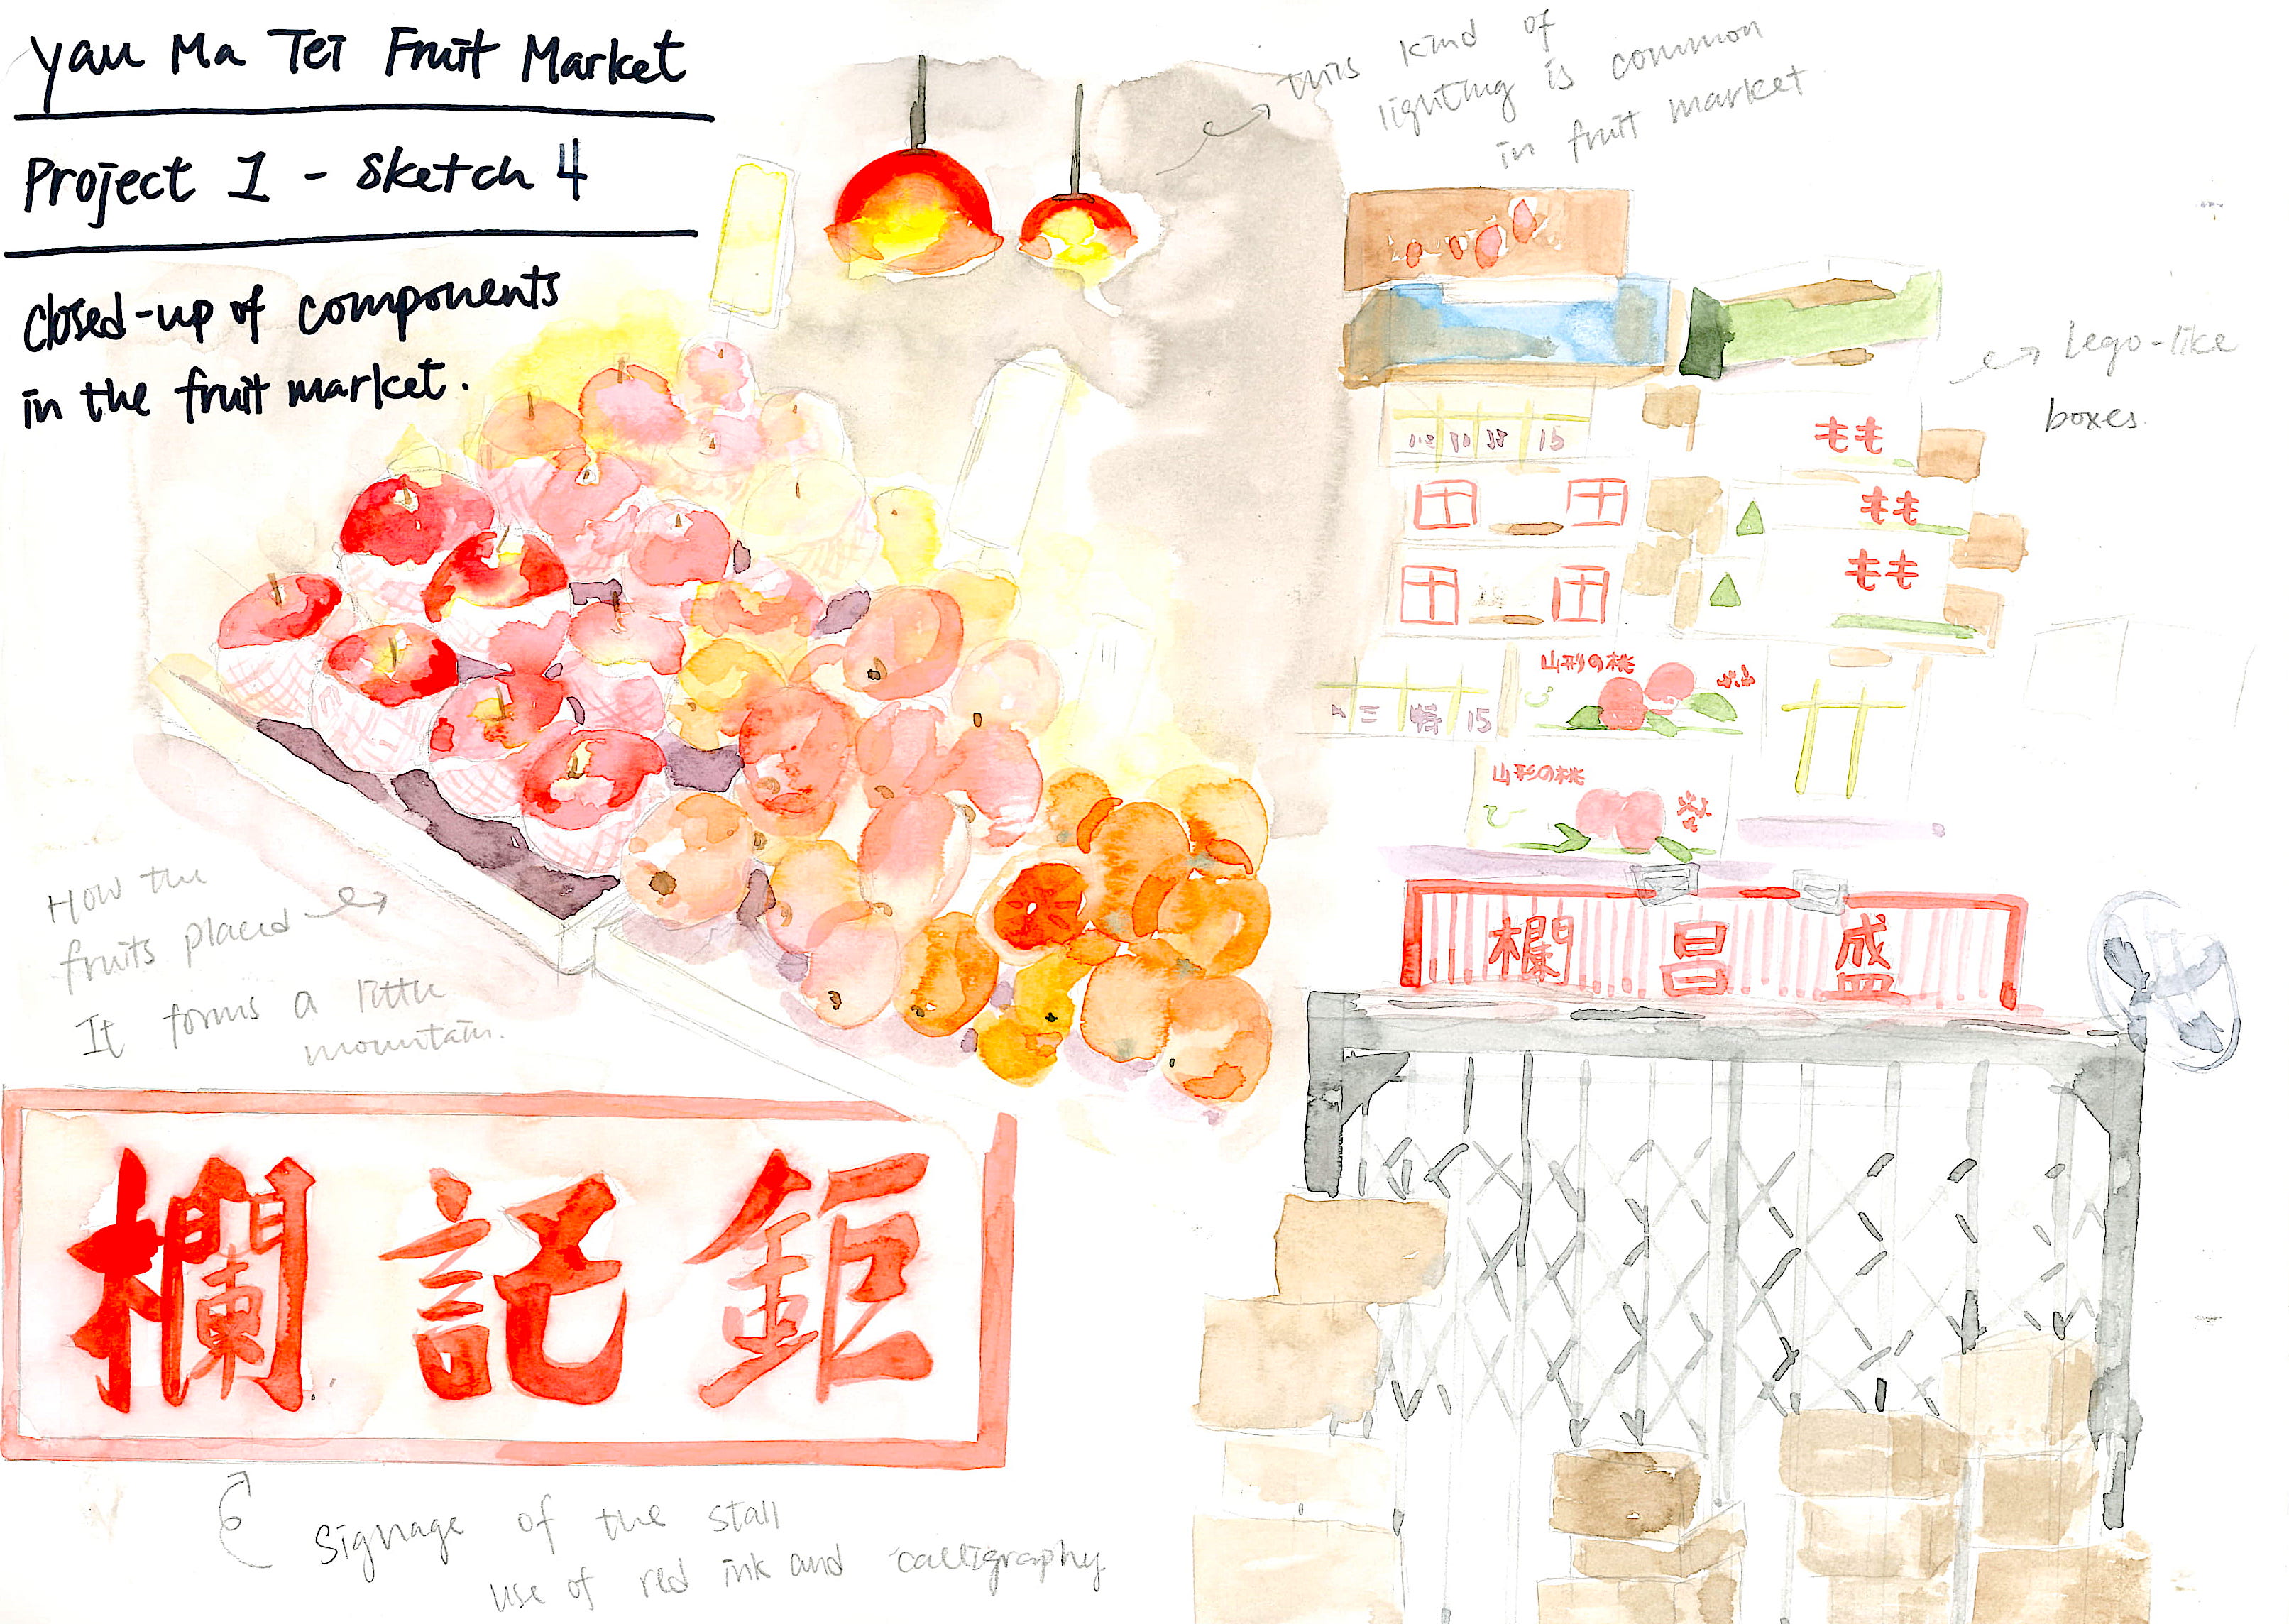 Yau Ma Tei Fruit Market
Project 1 - Sketch 4
Closed-up of components
in the fruit market.
this kind of
lighting is common
in fruit market
Lego-like
boxes
15
もも
もも
もも
田 田
田 田
山形の桃
特 15
山形の桃
欄 昌 盛
How the
fruits placed
It forms a little
mountain.
欄 記 鉅
Signage of the stall
use of red ink and calligraphy